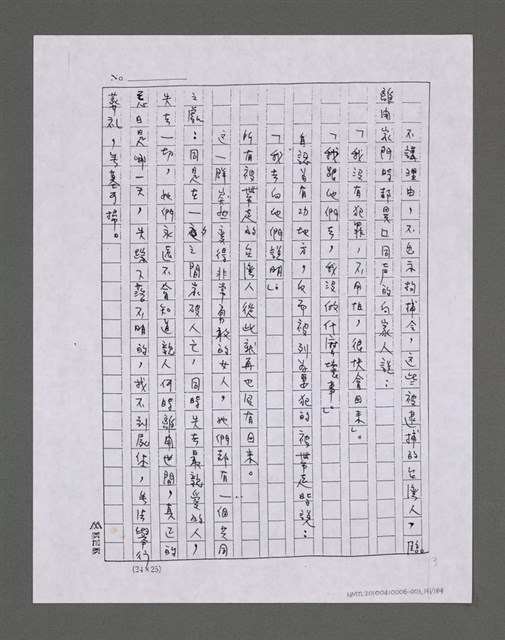 No.
不講理由，不出示拘捕令，這些被逮捕的台灣人，臨
離開家門時都異口同聲的向家人說：
「我沒有犯罪，不用怕，很快會回來」。
「我跟他們去，我沒做什麼壞事」。
自認有功地方，反而被列為要犯的被帶走時說：
「我去向他們說明」。
所有被帶走的台灣人從此就再也沒有回來。
這一群突然變得非常勇敢的女人，她們都有一個共同
之處：同是在一夜之間家破人亡，同時失去最親愛的人，
失去一切，她們永遠不會知道親人何時離開世間，真正的
忌日是哪一天，失蹤下落不明的，找不到屍体，無法舉行
葬礼，無墓可掃。
(24×25)
3
NMTL20100410006-003_141/184